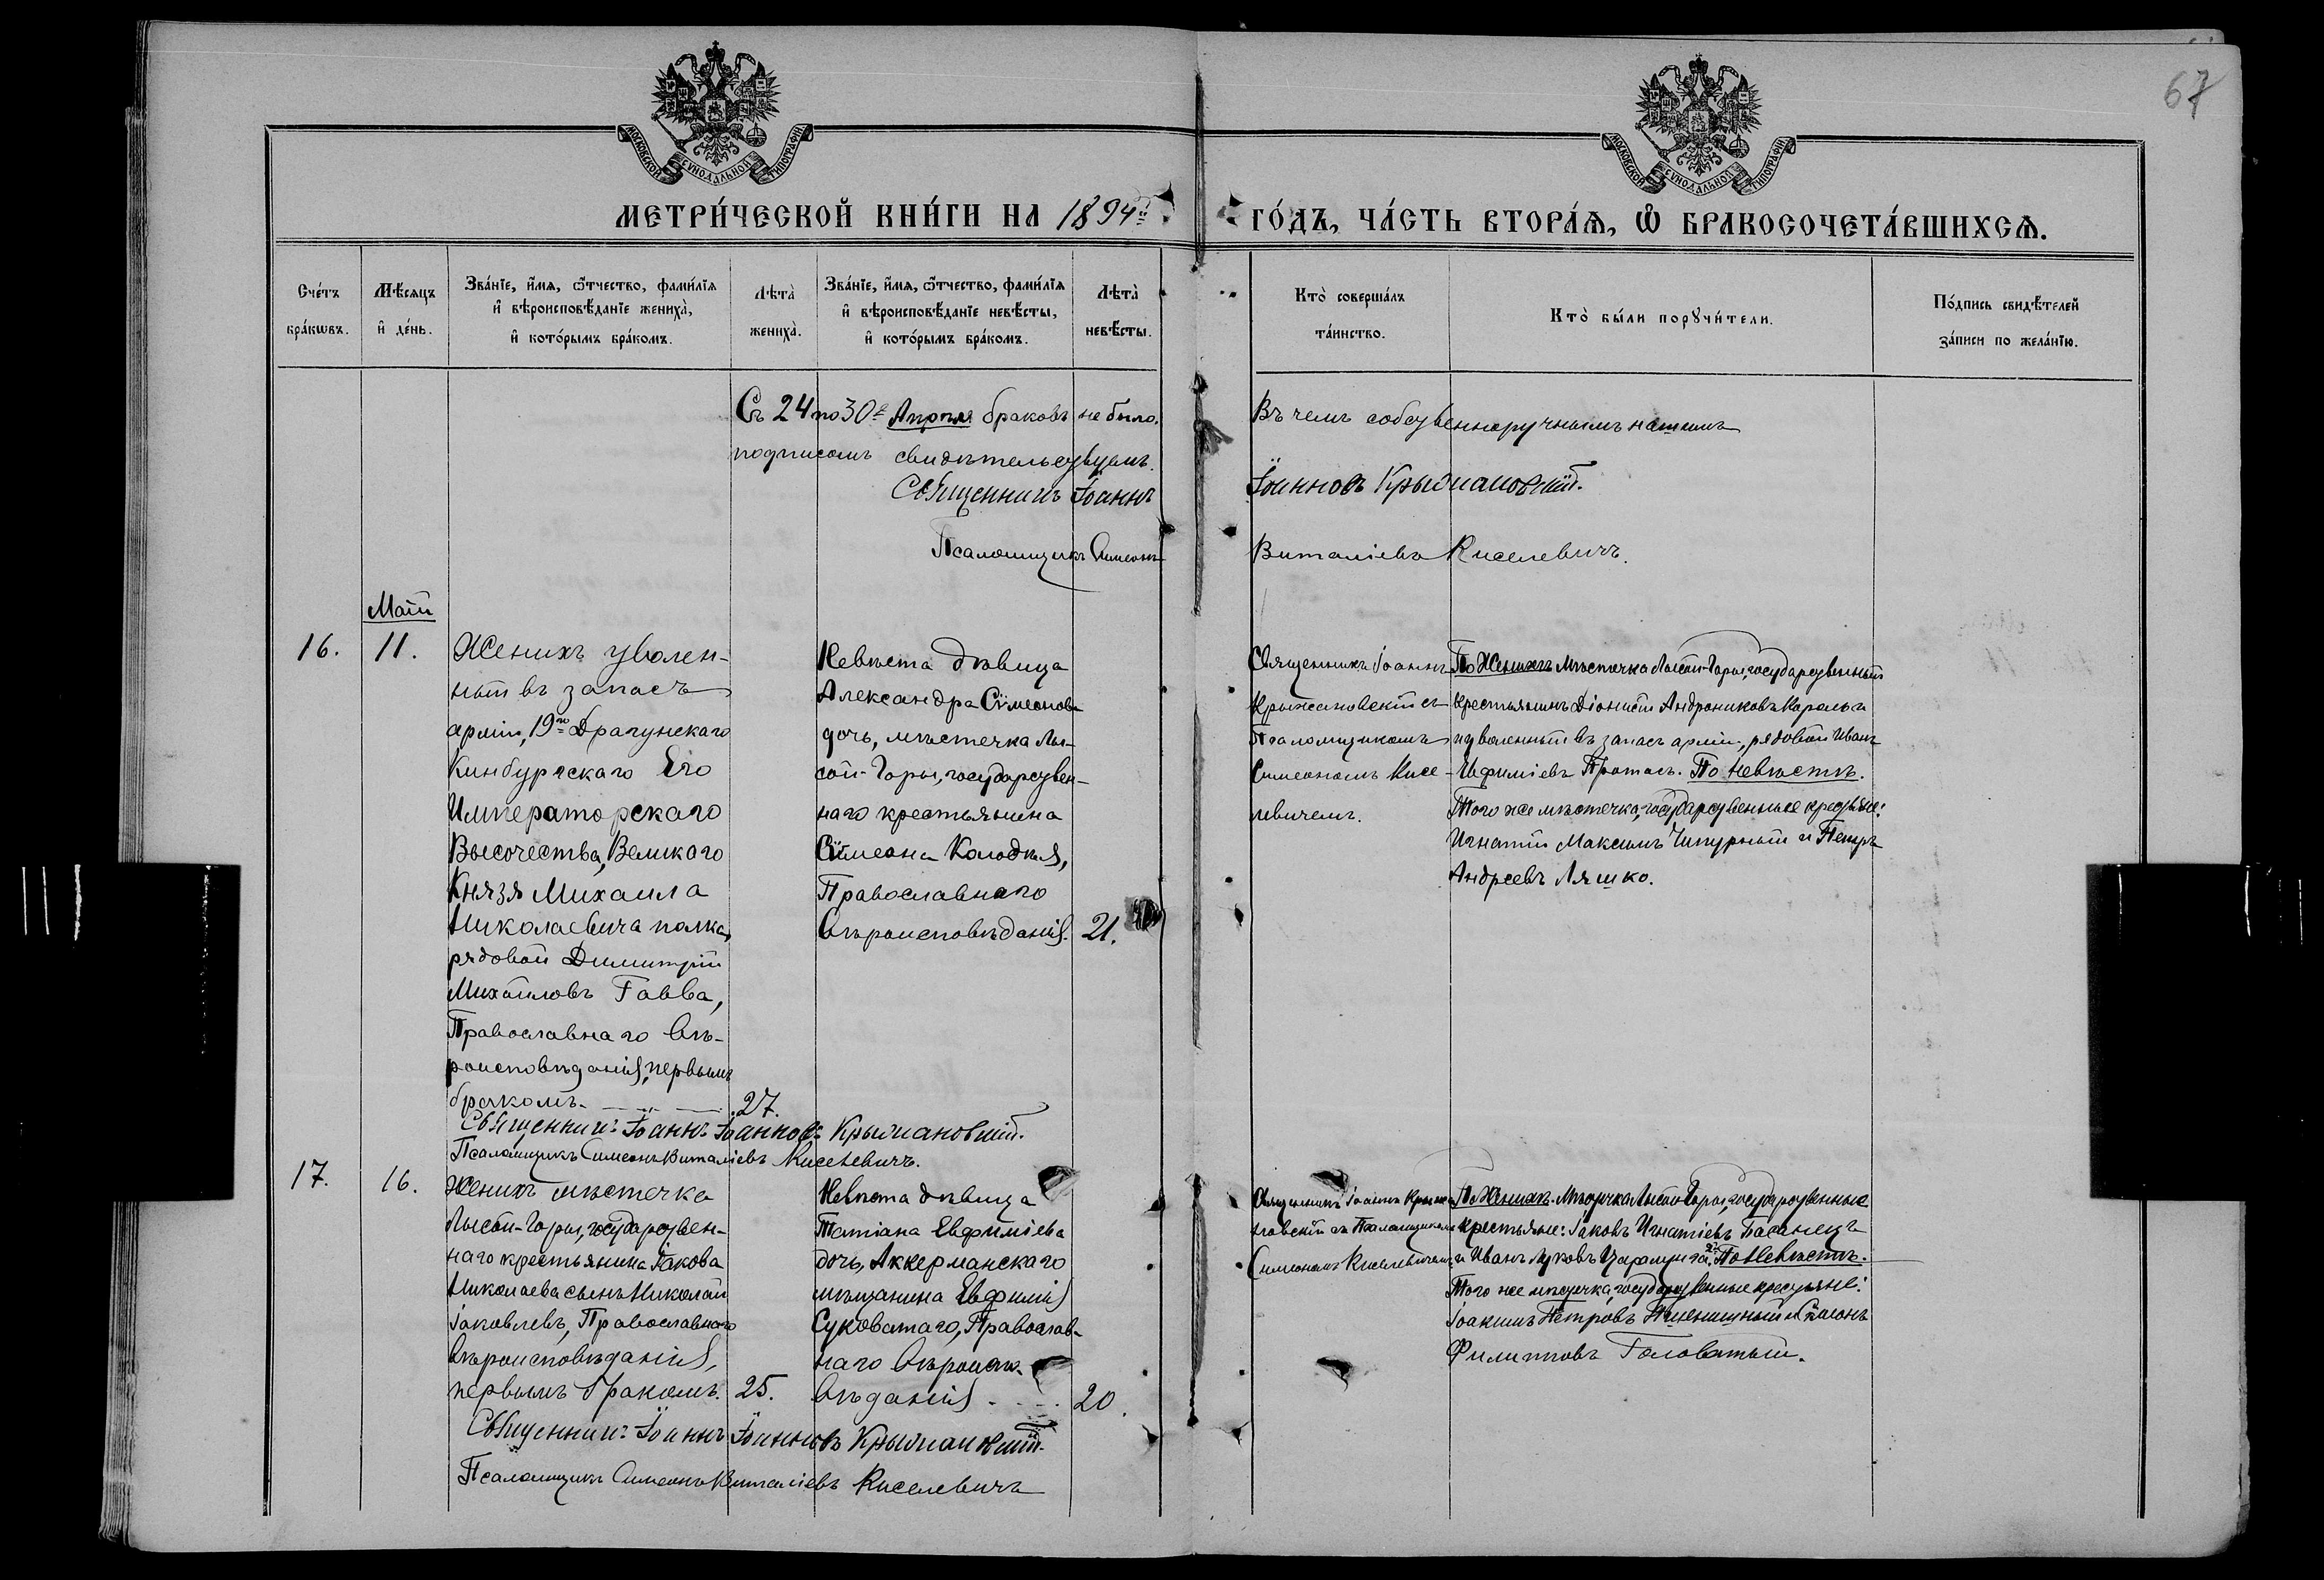 67
МОСКОВСКОЙ СѴНОДАЛЬНОЙ ТИПОГРАФІИ
МОСКОВСКОЙ СѴНОДАЛЬНОЙ ТИПОГРАФІИ
МЕТРИ́ЧЕСКОЙ КНИ́ГИ НА 1894й
ГО́ДЪ, ЧА́СТЬ ВТОРА́Ѧ, Ѡ҆ БРАКОСОЧЕТА́ВШИХСѦ.
Сче́тъ бра́кѡвъ.
Мѣ́сяцъ и҆ де́нь.
Зва́нїе, и҆́мя, ѻ҆́тчество, фами́лїя
и҆ вѣроисповѣ́данїе жениха̀,
и҆ кото́рымъ бра́комъ.
Лѣта̀ жениха̀.
Зва́нїе, и҆́мя, ѻ҆́тчество, фами́лїя
и҆ вѣроисповѣ́данїе невѣ́сты,
и҆ кото́рымъ бра́комъ.
Лѣта̀ невѣ́сты.
Кто̀ соверша́лъ
та́инство.
Кто̀ бы́ли порꙋчи́тели.
По́дпись свидѣ́телей
за́писи по жела́нїю.
Съ 24 по 30е Апрѣля браковъ не было.
Въ чемъ собственноручнымъ нашимъ
подписомъ свидѣтельствуемъ.
Священникъ Іоаннъ
Іоанновъ Крыжановскій.
Псаломщикъ Симеонъ
Виталіевъ Киселевичъ.
Май
16.
11.
Женихъ уволен-
ный въ запасъ
арміи, 19го Драгунскаго
Кинбурнскаго Его
Императорскаго
Высочества, Великаго
Князя Михаила
Николаевича полка,
рядовой Димитрій
Михайловъ Гавва,
Православнаго Вѣ-
роисповѣданія, первымъ
бракомъ. 27.
Невѣста дѣвица
Александра Сѵмеонова
дочь, мѣстечка Лы-
сой-Горы, государствен-
наго крестьянина
Сѵмеона Колодѣя,
Православнаго
Вѣроисповѣданія. 21.
Священникъ Іоаннъ
Крыжановскій съ
Псаломщикомъ
Симеономъ Кисе-
левичемъ.
По Женихѣ Мѣстечка Лысой-Горы, государственный
крестьянинъ Діонисій Андрониковъ Король и
уволенный въ запасъ арміи, рядовой Иванъ
Ефиміевъ Протасъ. По Невѣстѣ.
Того же мѣстечка, государственные крестьяне:
Игнатій Максимъ Чипурный и Петръ
Андреевъ Ляшко.
Священникъ Іоаннъ Іоанновъ Крыжановскій.
Псаломщикъ Симеонъ Виталіевъ Киселевичъ.
17.
16.
Женихъ мѣстечка
Лысой-Горы, государствен-
наго крестьянина Іакова
Николаева сынъ Николай
Іаковлевъ, Православнаго
Вѣроисповѣданія,
первымъ бракомъ. 25.
Невѣста дѣвица
Татіана Евфиміева
дочь, Аккерманскаго
мѣщанина Евфимія
Суковатаго, Православ-
наго Вѣроиспо-
вѣданія 20.
Священникъ Іоаннъ Крыжа-
новскій съ Псаломщикомъ
Симеономъ Киселевичемъ.
По Женихѣ. Мѣстечка Лысой-Горы, государственные
крестьяне: Іаковъ Игнатіевъ Басанецъ
и Иванъ Луковъ По Невѣстѣ.
Того же мѣстечка, государственные крестьяне:
Іоакимъ Петровъ и
Филипповъ Головатый.
Священникъ Іоаннъ Іоанновъ Крыжановскій.
Псаломщикъ Симеонъ Виталіевъ Киселевичъ